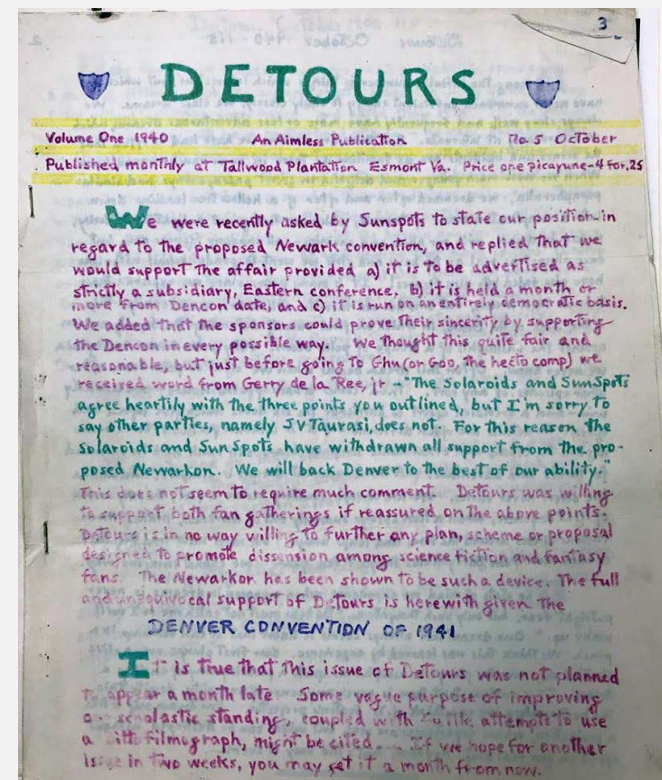 3
DETOURS
Volume One 1940 An Aimless Publication No. 5 October
Published monthly at Tallwood Plantation Esmont Va. Price one picayune-4 for .25
We were recently asked by Sunspots to state our position in
regard to the proposed Newark convention, and replied that we
would support the affair provided a) it is to be advertised as
strictly a subsidiary, Eastern conference, b) it is held a month or
more from Dencon date, and c) it is run on an entirely democratic basis.
We added that the sponsors could prove their sincerity by supporting
the Dencon in every possible way. We thought this quite fair and
reasonable, but just before going to Ghu (or Goo, the hecto comp) we
received word from Gerry de la Ree, jr - "The Solaroids and SunSpots
agree heartily with the three points you outlined, but I'm sorry to
say other parties, namely JV Taurasi, does not. For this reason the
Solaroids and SunSpots have withdrawn all support from the pro-
posed Newarkon. We will back Denver to the best of our ability."
This does not seem to require much comment. Detours was willing
to support both fan gatherings if reassured on the above points.
Detours is in no way willing to further any plan, scheme or proposal
designed to promote dissension among science fiction and fantasy
fans. The Newarkon has been shown to be such a device. The full
and unequivocal support of Detours is herewith given the
DENVER CONVENTION OF 1941
It is true that this issue of Detours was not planned
to appear a month late Some vague purpose of improving
scholastic standing, coupled with futile attempts to use
a filmograph, might be cited... If we hope for another
issue in two weeks, you may get it a month from now.